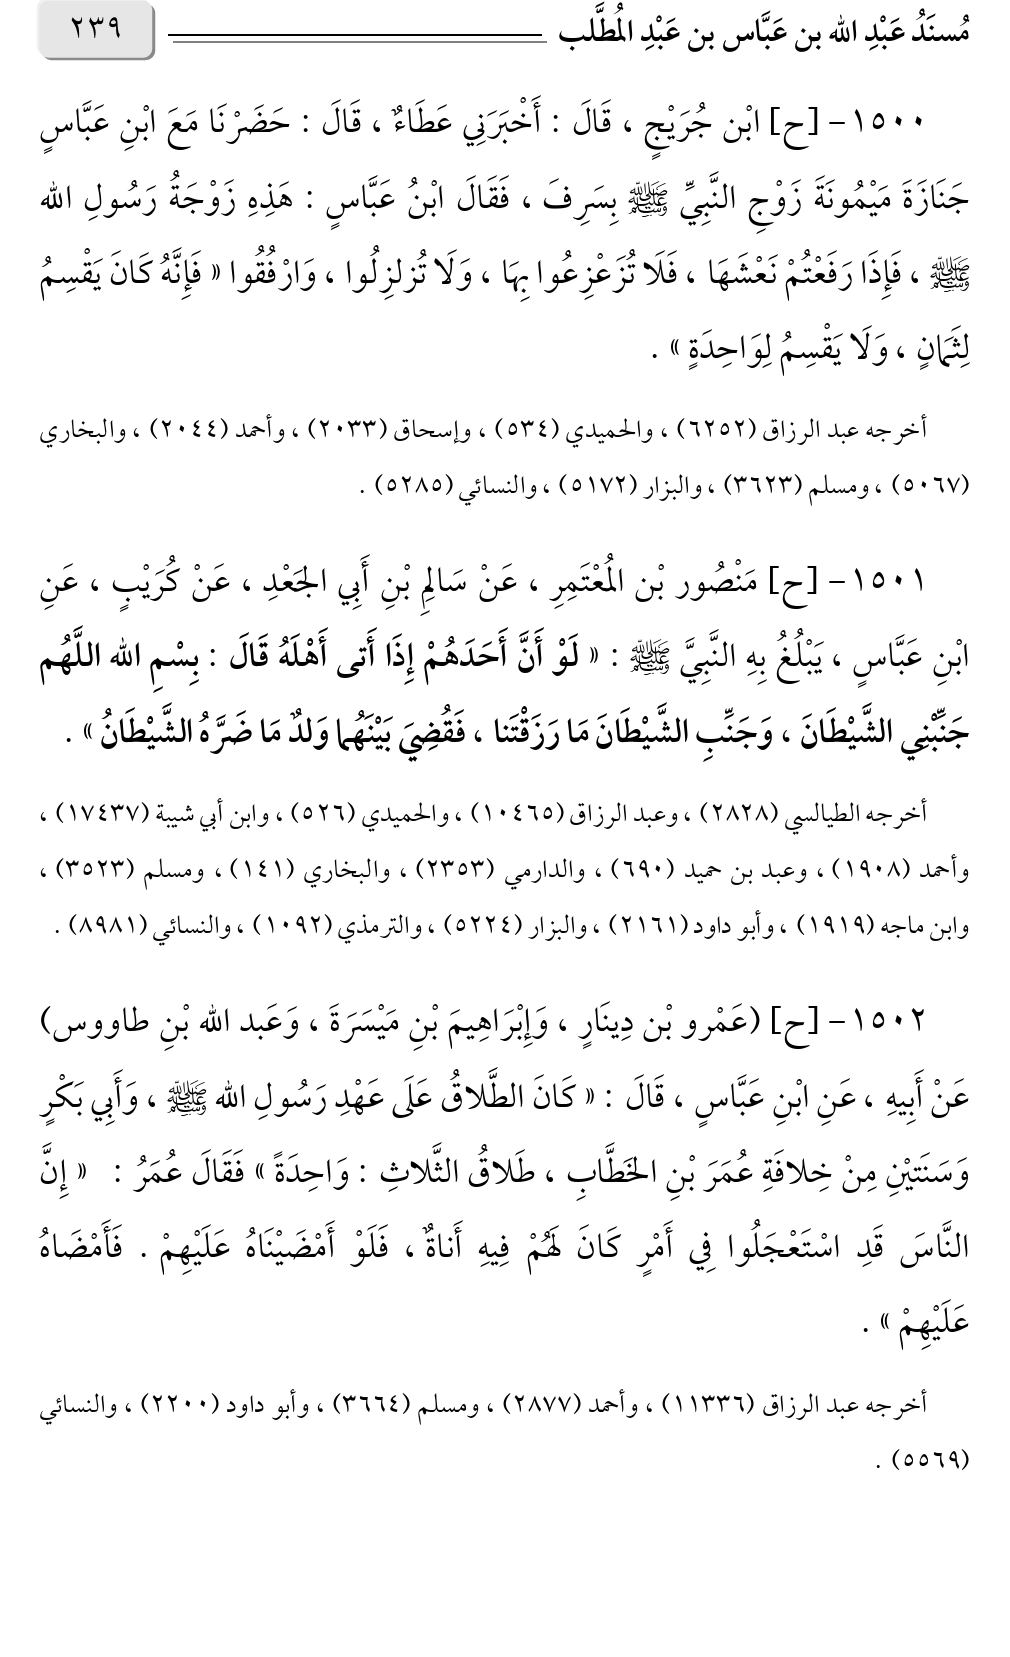 مُسنَدُ عَبْدِ الله بن عَبَّاس بن عَبْدِ المُطَّلب ٢٣٩
١٥٠٠- [ح] ابْن جُرَيْجٍ ، قَالَ : أَخْبَرَنِي عَطَاءٌ ، قَالَ : حَضَرْنَا مَعَ ابْنِ عَبَّاسٍ
جَنَازَةَ مَيْمُونَةَ زَوْجِ النَّبِيِّ ﷺ بِسَرِفَ ، فَقَالَ ابْنُ عَبَّاسٍ : هَذِهِ زَوْجَةُ رَسُولِ الله
ﷺ ، فَإِذَا رَفَعْتُمْ نَعْشَهَا ، فَلَا تُزَعْزِعُوا بِهَا ، وَلَا تُزلزِلُوا ، وَارْفُقُوا « فَإِنَّهُ كَانَ يَقْسِمُ
لِثَمَانٍ ، وَلَا يَقْسِمُ لِوَاحِدَةٍ » .
أخرجه عبد الرزاق (٦٢٥٢) ، والحميدي (٥٣٤) ، وإسحاق (٢٠٣٣) ، وأحمد (٢٠٤٤) ، والبخاري
(٥٠٦٧) ، ومسلم (٣٦٢٣) ، والبزار (٥١٧٢) ، والنسائي (٥٢٨٥) .
١٥٠١- [ح] مَنْصُور بْن المُعْتَمِرِ ، عَنْ سَالِمِ بْنِ أَبِي الجَعْدِ ، عَنْ كُرَيْبٍ ، عَنِ
ابْنِ عَبَّاسٍ ، يَبْلُغُ بِهِ النَّبِيَّ ﷺ : « لَوْ أَنَّ أَحَدَهُمْ إِذَا أَتى أَهْلَهُ قَالَ : بِسْمِ الله اللَّهُم
جَنِّبْنِي الشَّيْطَانَ ، وَجَنِّبِ الشَّيْطَانَ مَا رَزَقْتَنا ، فَقُضِيَ بَيْنَهُما وَلدٌ مَا ضَرَّهُ الشَّيْطَانُ » .
أخرجه الطيالسي (٢٨٢٨) ، وعبد الرزاق (١٠٤٦٥) ، والحميدي (٥٢٦) ، وابن أبي شيبة (١٧٤٣٧) ،
وأحمد (١٩٠٨) ، وعبد بن حميد (٦٩٠) ، والدارمي (٢٣٥٣) ، والبخاري (١٤١) ، ومسلم (٣٥٢٣) ،
وابن ماجه (١٩١٩) ، وأبو داود (٢١٦١) ، والبزار (٥٢٢٤) ، والترمذي (١٠٩٢) ، والنسائي (٨٩٨١) .
١٥٠٢- [ح] (عَمْرو بْن دِينَارٍ ، وَإِبْرَاهِيمَ بْنِ مَيْسَرَةَ ، وَعَبد الله بْنِ طاووس)
عَنْ أَبِيهِ ، عَنِ ابْنِ عَبَّاسٍ ، قَالَ : « كَانَ الطَّلاقُ عَلَى عَهْدِ رَسُولِ الله ﷺ ، وَأَبِي بَكْرٍ
وَسَنَتَيْنِ مِنْ خِلافَةِ عُمَرَ بْنِ الخَطَّابِ ، طَلاقُ الثَّلاثِ : وَاحِدَةً » فَقَالَ عُمَرُ : « إِنَّ
النَّاسَ قَدِ اسْتَعْجَلُوا فِي أَمْرٍ كَانَ لَهُمْ فِيهِ أَناةٌ ، فَلَوْ أَمْضَيْنَاهُ عَلَيْهِمْ . فَأَمْضَاهُ
عَلَيْهِمْ » .
أخرجه عبد الرزاق (١١٣٣٦) ، وأحمد (٢٨٧٧) ، ومسلم (٣٦٦٤) ، وأبو داود (٢٢٠٠) ، والنسائي
(٥٥٦٩) .